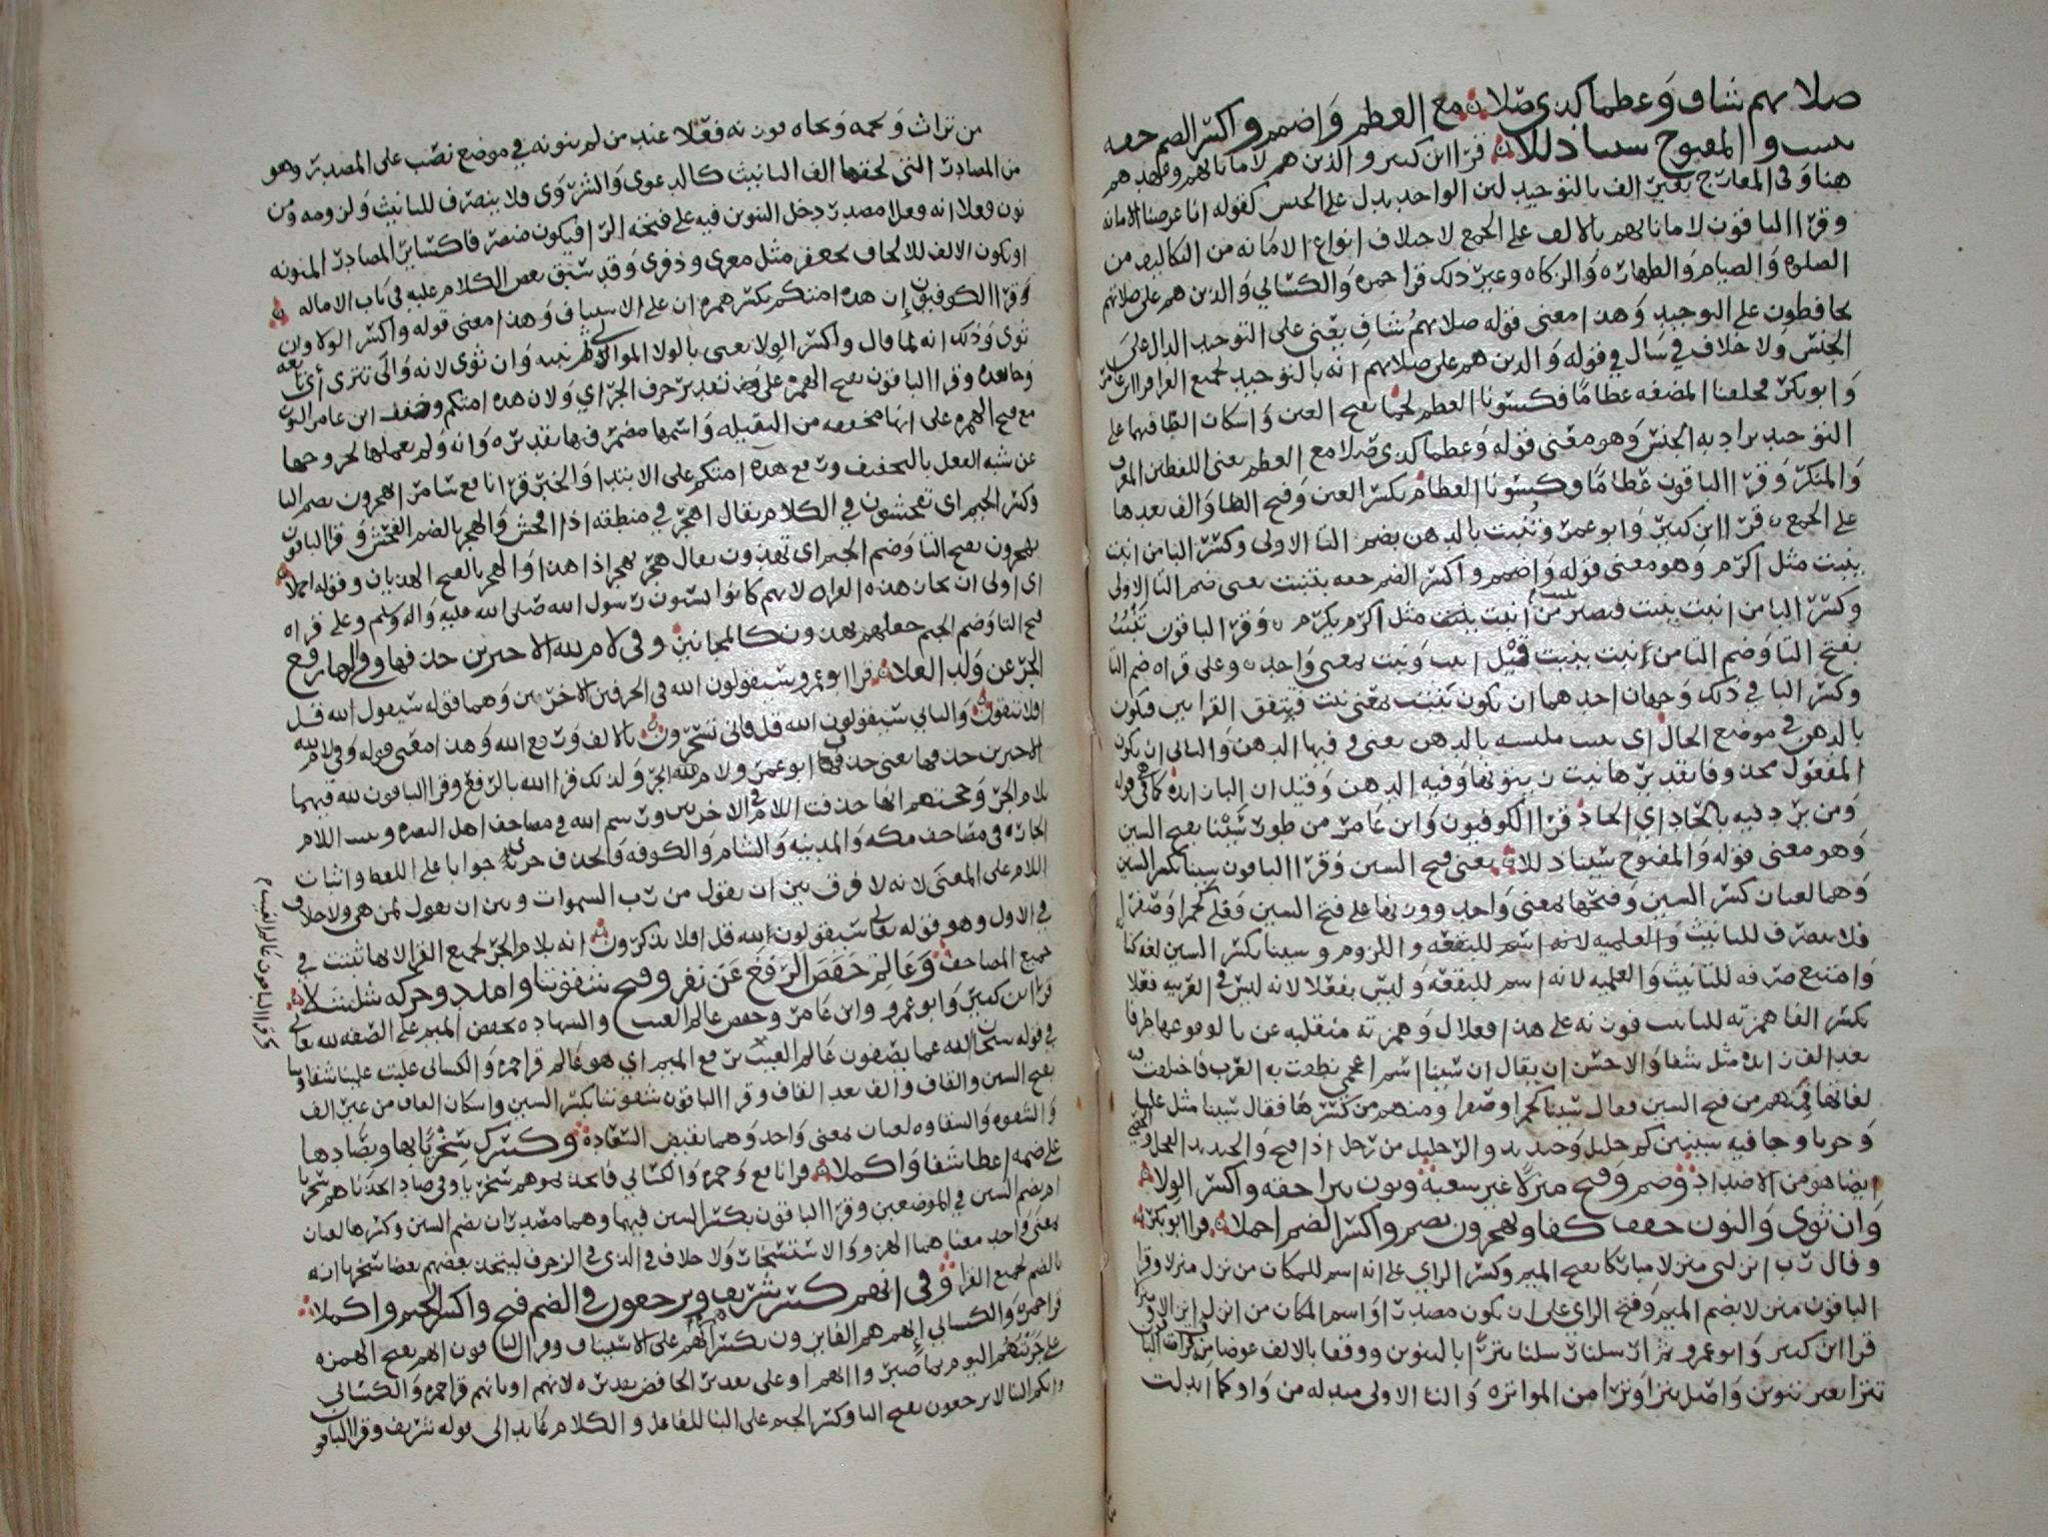 صلاتهم شاف وعظما كذي صلا مع العظم واضمم واكسر الضم حقه
بتنبت والمفتوح سيناء ذللا قرا ابن كثير والذين هم لاماناتهم وعهدهم
هنا وفي المعارج بغير الف بالتوحيد لان الواحد يدل على الجنس كقوله انا عرضنا الامانة
وقرا الباقون لاماناتهم بالالف على الجمع لاختلاف انواع الامانه من التكاليف من
الصلوه والصيام والطهاره والزكاه وغير ذلك قرا حمزه والكسائي والذين هم على صلاتهم
يحافظون على التوحيد وهذا معنى قوله صلاتهم شاف يعني على التوحيد الدال على
الجنس ولا خلاف في سال في قوله والذين هم على صلاتهم انه بالتوحيد لجميع القرا قرا ابن عامر
وابو بكر فخلقنا المضغه عظاما فكسونا العظم لحما بفتح العين واسكان الظا فيهما على
التوحيد يراد به الجنس وهو معنى قوله وعظما كذي صلا مع العظم يعني اللفظين المعرف
والمنكر وقرا الباقون عظاما وكسونا العظام بكسر العين وفتح الظا والف بعدها
على الجمع قرا ابن كثير وابو عمرو تنبت بالدهن بضم التا الاولى وكسر البا من انبت
ينبت مثل اكرم وهو معنى قوله واضمم واكسر الضم حقه بتنبت يعني ضم التا الاولى
وكسر البا من انبت ينبت فيصير من انبت ينبت مثل اكرم يكرم وقرا الباقون تنبت
بفتح التا وضم البا من نبت ينبت قيل انبت ونبت بمعنى واحد وعلى قراه ضم التا
وكسر البا في ذلك وجهان احدهما ان يكون تنبت بمعنى نبت فيتفق القراتين فيكون
بالدهن في موضع الحال اي تنبت ملتبسه بالدهن يعني وفيها الدهن والثاني ان يكون
المفعول محذوفا تقديرها تنبت زيتونها وفيه الدهن وقيل ان البا زايده كما في قوله
ومن يرد فيه بالحاد اي الحاد قرا الكوفيون وابن عامر من طور سينا بفتح السين
وهو معنى قوله والمفتوح سيناء ذللا يعني فتح السين وقرا الباقون سينا بكسر السين
وهما لغتان كسر السين وفتحها بمعنى واحد ووزنها على فتح السين وقعلا كحمرا وصفرا
فلا ينصرف للتانيث والعلميه لانه اسم للبقعه واللزوم وسينا بكسر السين لغه كنانة
وامتنع صرفه للتانيث والعلميه لانه اسم للبقعه وليس بفعلا لانه ليس في العربيه فعلا
بكسر الفا همزته للتانيث فوزنه على هذا فعلال وهمزته منقلبه عن يا لوقوعها طرفا
بعد الف زايده مثل شفا والاحسن ان يقال ان سينا اسم اعجمي نطقت به العرب فاختلفت فيه
لغاتها فمنهم من فتح السين فقال سينا كحمرا وصفرا ومنهم من كسرها فقال سينا مثل علبا
وحربا وجا فيه سينين كم حليل وحديد والزحليل من زحل اذا تنحى
ايضا هو من الاضداد وضم وفتح منزلا غير شعبة ونون تترا حقه واكسر الولا
وان ثوى والنون خفف كفا وتهجرون بضم واكسر الضم اجملا قرا ابو بكر
وقال رب انزلني منزلا مباركا بفتح الميم وكسر الزاي على انه اسم للمكان من نزل منزلا وقرا
الباقون منزلا بضم الميم وفتح الزاي على ان يكون مصدرا او اسم المكان من انزل
قرا ابن كثير وابو عمرو ثم ارسلنا رسلنا تترا بالتنوين ووقفا بالالف عوضا من
تترا بغير تنوين واصل تترا وترا من المواتره والتا الاولى مبدله من واو كما ابدلت
من تراث وتخمه وتجاه فوزنه فعلا عند من لم ينونه في موضع نصب على المصدر وهو
من المصادر التي لحقها الف التانيث كالدعوى والشروى فلا ينصرف للتانيث ولزومه ومن
نون فعلا انه فعلا مصدر دخل التنوين فيه على فتحه الرا فيكون منصرفا كسائر المصادر المنونه
او يكون الالف للالحاق بجعفر مثل معزى وذفرى وقد سبق بعض الكلام عليه في باب الاماله
وقرا الكوفيون إن هذه امتكم بكسر همزه ان على الاستيناف وهذا معنى قوله واكسر الولا وان
ثوى وذلك انه لما قال واكسر الولا يعني بالولا الموالي لتترا وان ثوى لانه والى تترى اي تبعه
وما بعده وقرا الباقون بفتح الهمزه على تقدير حرف الجر اي ولان هذه امتكم وخفف ابن عامر النون
مع فتح الهمزه على انها مخففه من الثقيله واسمها مضمر فيها تقديره وانه ولم يعملها لخروجها
عن شبه الفعل بالتخفيف ورفع هذه امتكم على الابتدا والخبر قرا نافع سامرا تهجرون بضم التا
وكسر الجيم اي تفحشون في الكلام يقال اهجر في منطقه اذا افحش والهجر بالضم الفحش وقرا الباقون
تهجرون بفتح التا وضم الجيم اي تهذون يقال هجر يهجر اذا هذا والهجر بالفتح الهذيان وقوله اجملا
اي اولى ان تختار هذه القراه لانهم كانوا يسبون رسول الله صلى الله عليه واله وسلم وعلى قراه
فتح التا وضم الجيم جعلهم يهذون كالمجانين وفي لام لله الاخيرين حذفها وفي الهاء رفع
الجر عن ولد العلا قرا ابو عمرو سيقولون الله في الحرفين الاخرين وهما قوله سيقولون الله قل
افلا تتقون والثاني سيقولون الله قل فانى تسحرون بالالف ورفع الله وهذا معنى قوله وفي لام لله
الاخيرين حذفها يعني حذفها ابو عمرو ولام لله الجر ولذلك قرا الله بالرفع وقرا الباقون لله فيهما
بلام الجر وحجتهم انها حذفت اللام في الاخرين ورسم الله في مصاحف اهل البصره وثبتت اللام
الجاره في مصاحف مكه والمدينه والشام والكوفه والحذف جوابا على اللفظ واثبات
اللام على المعنى لانه لا فرق بين ان يقول من رب السموات وبين ان يقول لمن هي ولا خلاف
في الاول وهو قوله تعالى سيقولون لله قل افلا تذكرون انه بلام الجر لجميع القرا لانها ثبتت في
جميع المصاحف وعالم خفض الرفع عن نفر وفتح شقوتنا وامدد وحركه شلشلا
قرا ابن كثير وابو عمرو وابن عامر وحفص عالم الغيب والشهاده بخفض الميم على الصفه لله تعالى
في قوله سبحان الله عما يصفون عالم الغيب رفع الميم اي هو عالم قرا حمزه والكسائي غلبت علينا شقاوتنا
بفتح السين والقاف والف بعد القاف وقرا الباقون شقوتنا بكسر السين واسكان القاف من غير الف
والشقوه والشقاوه لغتان بمعنى واحد وهما نقيض السعادة وكسرك سخريا بها وبصادها
على ضمه اعطا شفا واكملا قرا نافع وحمزه والكسائي فاتخذتموهم سخريا وفي صاد اتخذناهم سخريا
ام بضم السين في الموضعين وقرا الباقون بكسر السين فيهما وهما مصدران بضم السين وكسرها لغتان
بمعنى واحد معناهما الهزو والاستسخار ولا خلاف في الذي في الزخرف ليتخذ بعضهم بعضا سخريا انه
بالضم لجميع القرا وفي انهم كسر شريف وترجعون في الضم فتح واكسر الجيم واكملا
قرا حمزه والكسائي إنهم هم الفايزون بكسر انهم على الاستيناف وقرا الباقون انهم بفتح الهمزه
على جزيتهم اليوم بما صبروا انهم او على تقدير الخافض تقديره لانهم او بانهم قرا حمزه والكسائي
وانكم الينا لا ترجعون بفتح التا وكسر الجيم على البنا للفاعل والكلام عايد الى قوله شريف وقرا الباقون
وقرا الباقون عالم الغيب